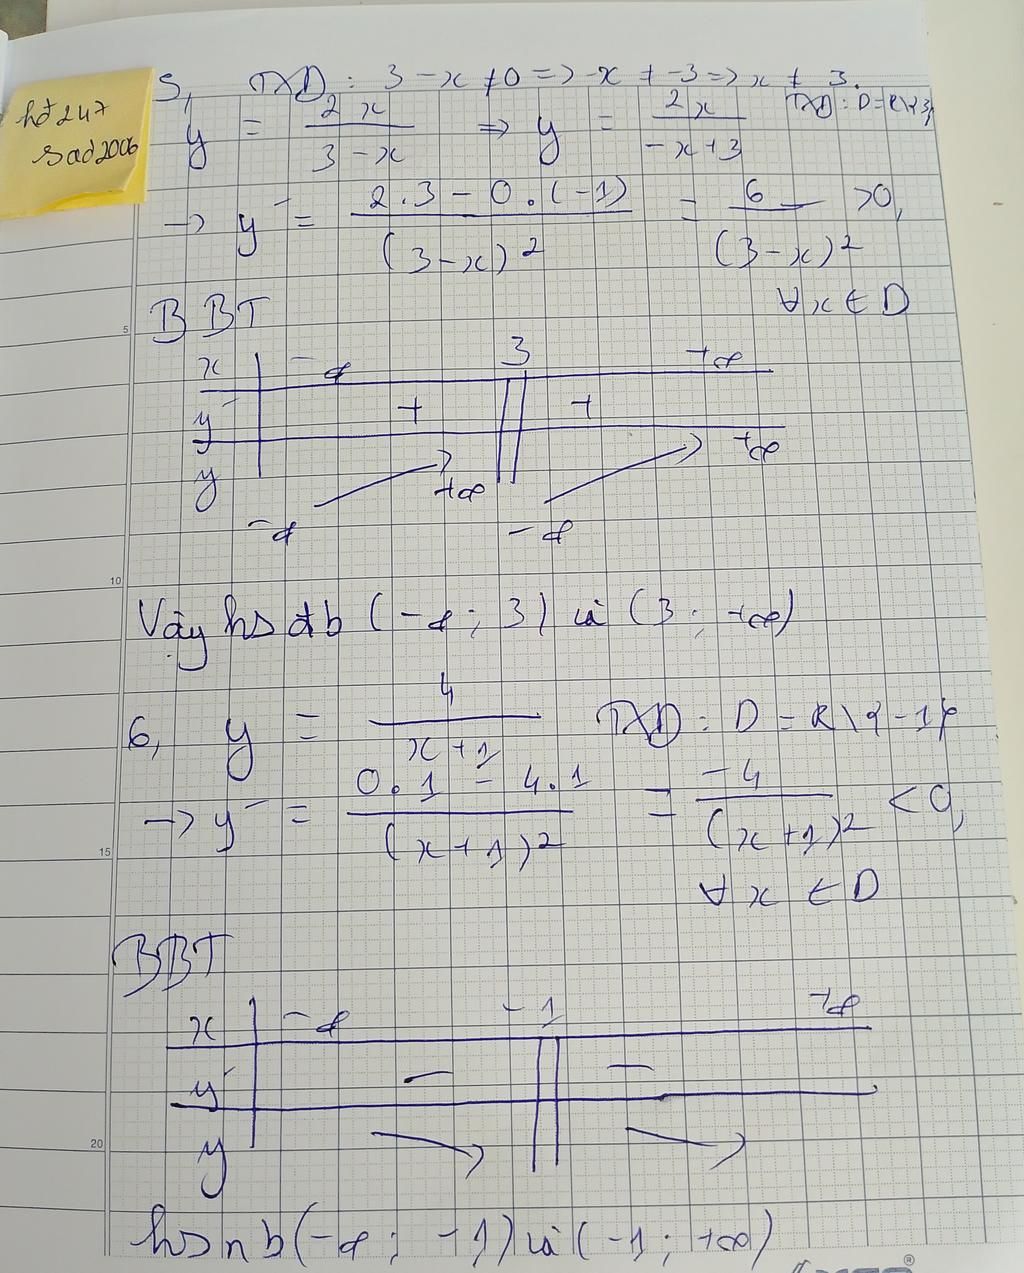 hđ247
sad2006
5, TXD : 3 - x ≠ 0 => -x ≠ -3 => x ≠ 3.
y = 2x / (3 - x) => y = 2x / (-x + 3) TXD : D = R\{3}
→ y' = (2.3 - 0.(-1)) / (3-x)² = 6 / (3-x)² > 0,
∀ x ∈ D
BBT
x -∞ 3 +∞
y' + +
y +∞ +∞
-∞ -∞
Vậy hs đb (-∞ ; 3) và (3 ; +∞)
6, y = 4 / (x + 1) TXD : D = R\{-1}
→ y' = (0.1 - 4.1) / (x+1)² = -4 / (x+1)² < 0,
∀ x ∈ D
BBT
x -∞ -1 +∞
y' - -
y
hs nb (-∞ ; -1) và (-1 ; +∞)
5
10
15
20